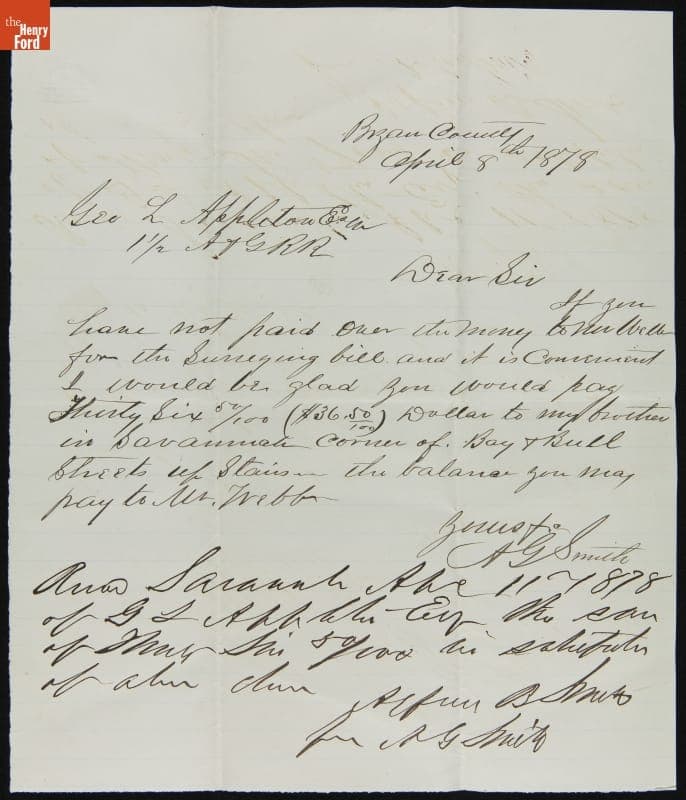 the
Henry
Ford
Bryan County
April 8th 1878
Geo L Appleton Esqr
1 1/2 A & G RR
Dear Sir
If you
have not paid over the money to Mr Webb
for the Surveying bill and it is Convenient
I would be glad you would pay
Thirty Six 50/100 ($36.50/100) Dollar to my brother
in Savannah Corner of Bay & Bull
Streets up Stairs the balance you may
pay to Mr. Webb
Yours &c
A G Smith
Savannah Apl 11 1878
of G L Appleton Esq the sum
of Thirty Six 50/100 in
of above
Alfred B Smith
for A G Smith